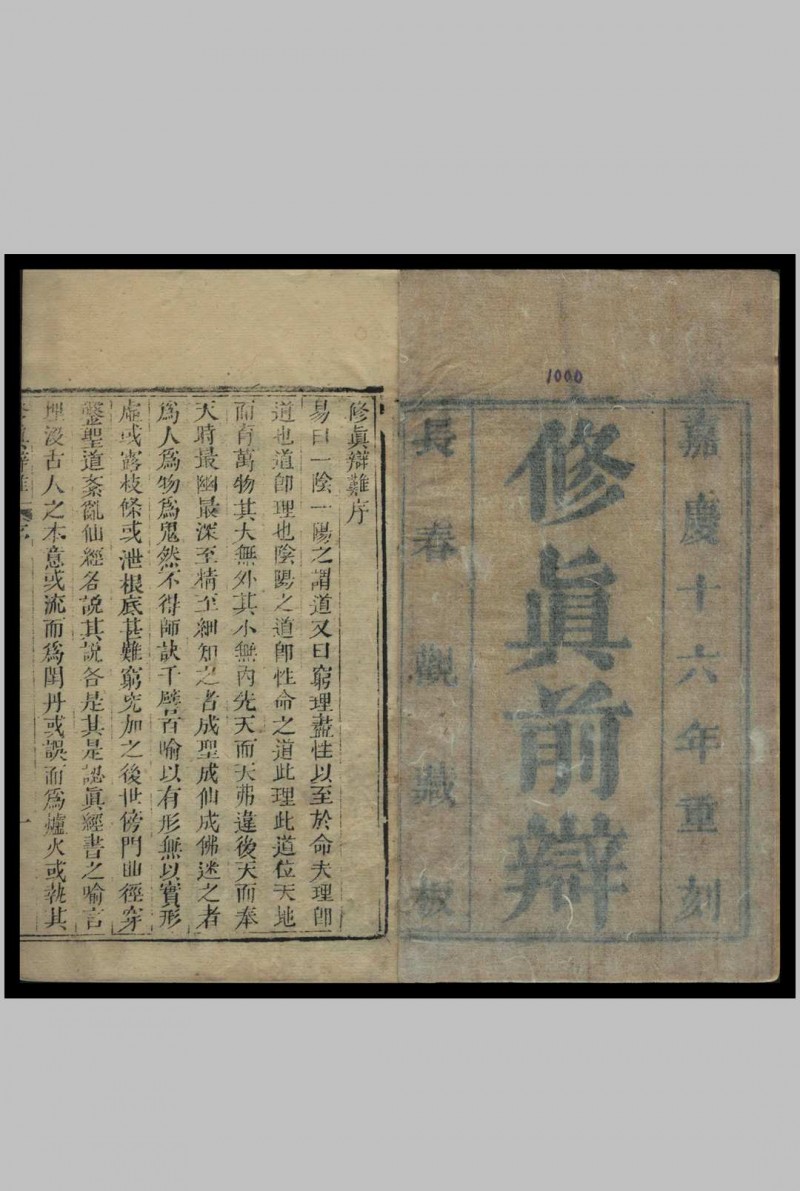 1000
嘉慶十六年重刻
修眞前辯
長春觀藏板
修眞辯難序
易曰一陰一陽之謂道又曰窮理盡性以至於命夫理卽
道也道卽理也陰陽之道卽性命之道此理此道位天地
而育萬物其大無外其小無內先天而天弗違後天而奉
天時最幽最深至精至細知之者成聖成仙成佛迷之者
爲人爲物爲鬼然不得師訣千譬百喻以有形無以實形
虛或露枝條或泄根底甚難窮究加之後世傍門曲徑穿
鑿聖道紊亂仙經各說其說各是其是認眞經書之喻言
埋沒古人之本意或流而爲閨丹或誤而爲爐火或執其
眞辯難 序 一